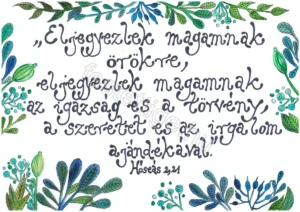 „Eljegyeztek magamnak
örökre,
eljegyeztek magamnak
az igazság és a törvény,
a szeretet és az irgalom
ajándékával."
Hóseás 2,21